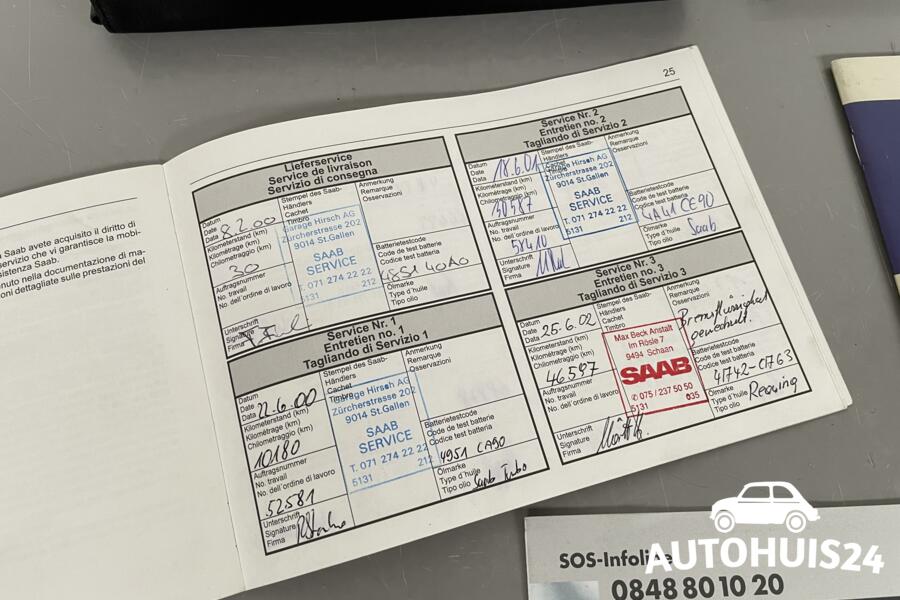 a Saab avete acquisito il diritto di
servizio che vi garantisce la mobi-
sistenza Saab.
nuto nella documentazione di ma-
oni dettagliate sulle prestazioni del
25
Lieferservice
Service de livraison
Servizio di consegna
Datum
Date
Data
8.2.00
Kilometerstand (km)
Kilométrage (km)
Chilometraggio (km)
30
Auftragsnummer
No. travail
No. dell'ordine di lavoro
Unterschrift
Signature
Firma
Stempel des Saab-
Händlers
Cachet
Timbro
Garage Hirsch AG
Zürcherstrasse 202
9014 St.Gallen
SAAB
SERVICE
T. 071 274 22 22
5131 212
Anmerkung
Remarque
Osservazioni
Batterietestcode
Code de test batterie
Codice test batteria
4851 40A0
Ölmarke
Type d'huile
Tipo olio
Service Nr. 1
Entretien no. 1
Tagliando di Servizio 1
Datum
Date
Data
22.6.00
Kilometerstand (km)
Kilométrage (km)
Chilometraggio (km)
10180
Auftragsnummer
No. travail
No. dell'ordine di lavoro
52581
Unterschrift
Signature
Firma
Stempel des Saab-
Händlers
Cachet
Timbro
Garage Hirsch AG
Zürcherstrasse 202
9014 St.Gallen
SAAB
SERVICE
T. 071 274 22 22
5131 212
Anmerkung
Remarque
Osservazioni
Batterietestcode
Code de test batterie
Codice test batteria
4951 CA90
Ölmarke
Type d'huile
Tipo olio
Saab Turbo
Service Nr. 2
Entretien no. 2
Tagliando di Servizio 2
Datum
Date
Data
18.6.01
Kilometerstand (km)
Kilométrage (km)
Chilometraggio (km)
Auftragsnummer
No. travail
No. dell'ordine di lavoro
58410
Unterschrift
Signature
Firma
Stempel des Saab-
Händlers
Garage Hirsch AG
Zürcherstrasse 202
9014 St.Gallen
SAAB
SERVICE
T. 071 274 22 22
5131 212
Anmerkung
Remarque
Osservazioni
Batterietestcode
Code de test batterie
Codice test batteria
4A41 CE90
Ölmarke
Type d'huile
Tipo olio
Saab
Service Nr. 3
Entretien no. 3
Tagliando di Servizio 3
Datum
Date
Data
25.6.02
Kilometerstand (km)
Kilométrage (km)
Chilometraggio (km)
46597
Auftragsnummer
No. travail
No. dell'ordine di lavoro
Unterschrift
Signature
Firma
Stempel des Saab-
Händlers
Cachet
Timbro
Max Beck Anstalt
Im Rösle 7
9494 Schaan
SAAB
✆ 075 / 237 50 50
5131 035
Anmerkung
Remarque
Osservazioni
Bremsflüssigkeit
gewechselt.
Batterietestcode
Code de test batterie
Codice test batteria
41742-C7763
Ölmarke
Type d'huile
Tipo olio
SOS-Infoline
0848 80 10 20
AUTOHUIS24